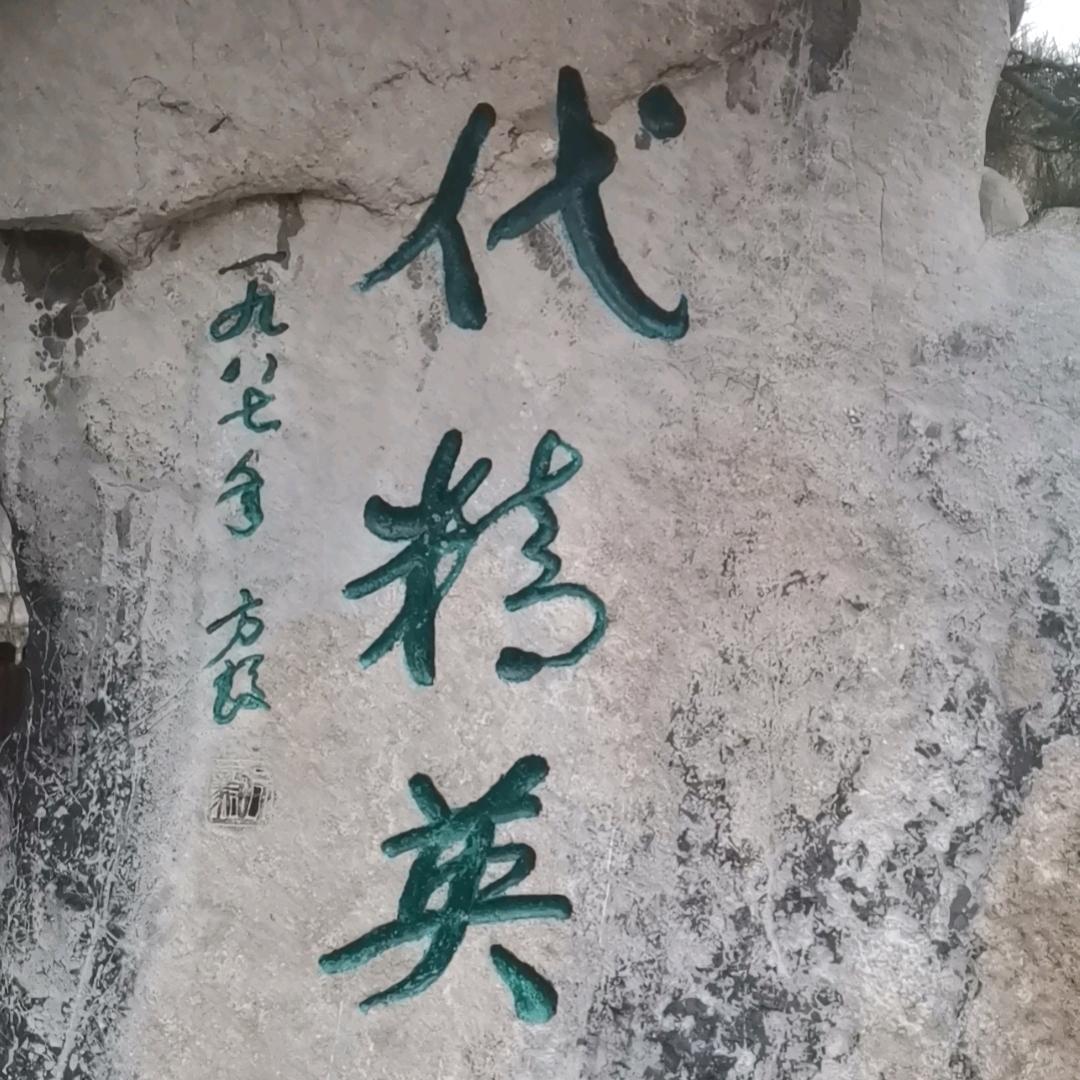 代精英
一九八七年 方毅